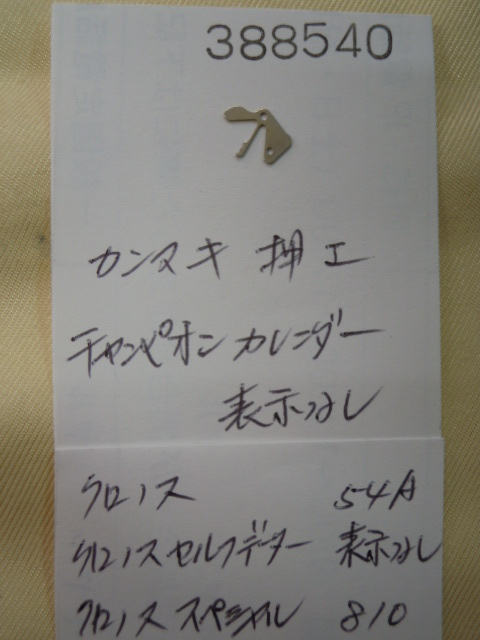 388540
カンヌキ 押エ
チャンピオン カレンダー
表示なし
クロノス 54A
クロノスセルフデーター 表示なし
クロノス スペシャル 810